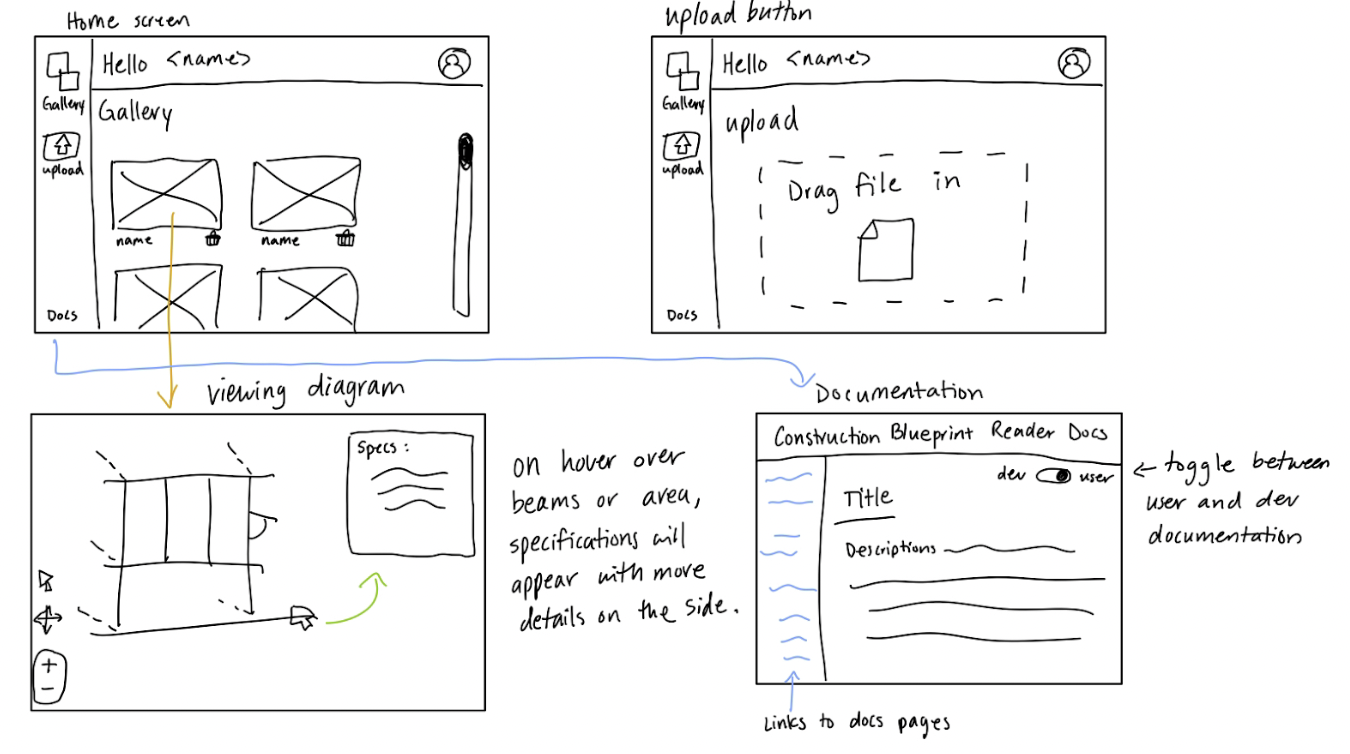 Home screen
Hello <name>
Gallery
Gallery
upload
name
name
Docs
upload button
Hello <name>
Gallery
upload
upload
Drag file in
Docs
viewing diagram
Specs :
+
-
on hover over
beams or area,
specifications will
appear with more
details on the side.
Documentation
Construction Blueprint Reader Docs
dev user
Title
Descriptions
← toggle between
user and dev
documentation
Links to docs pages